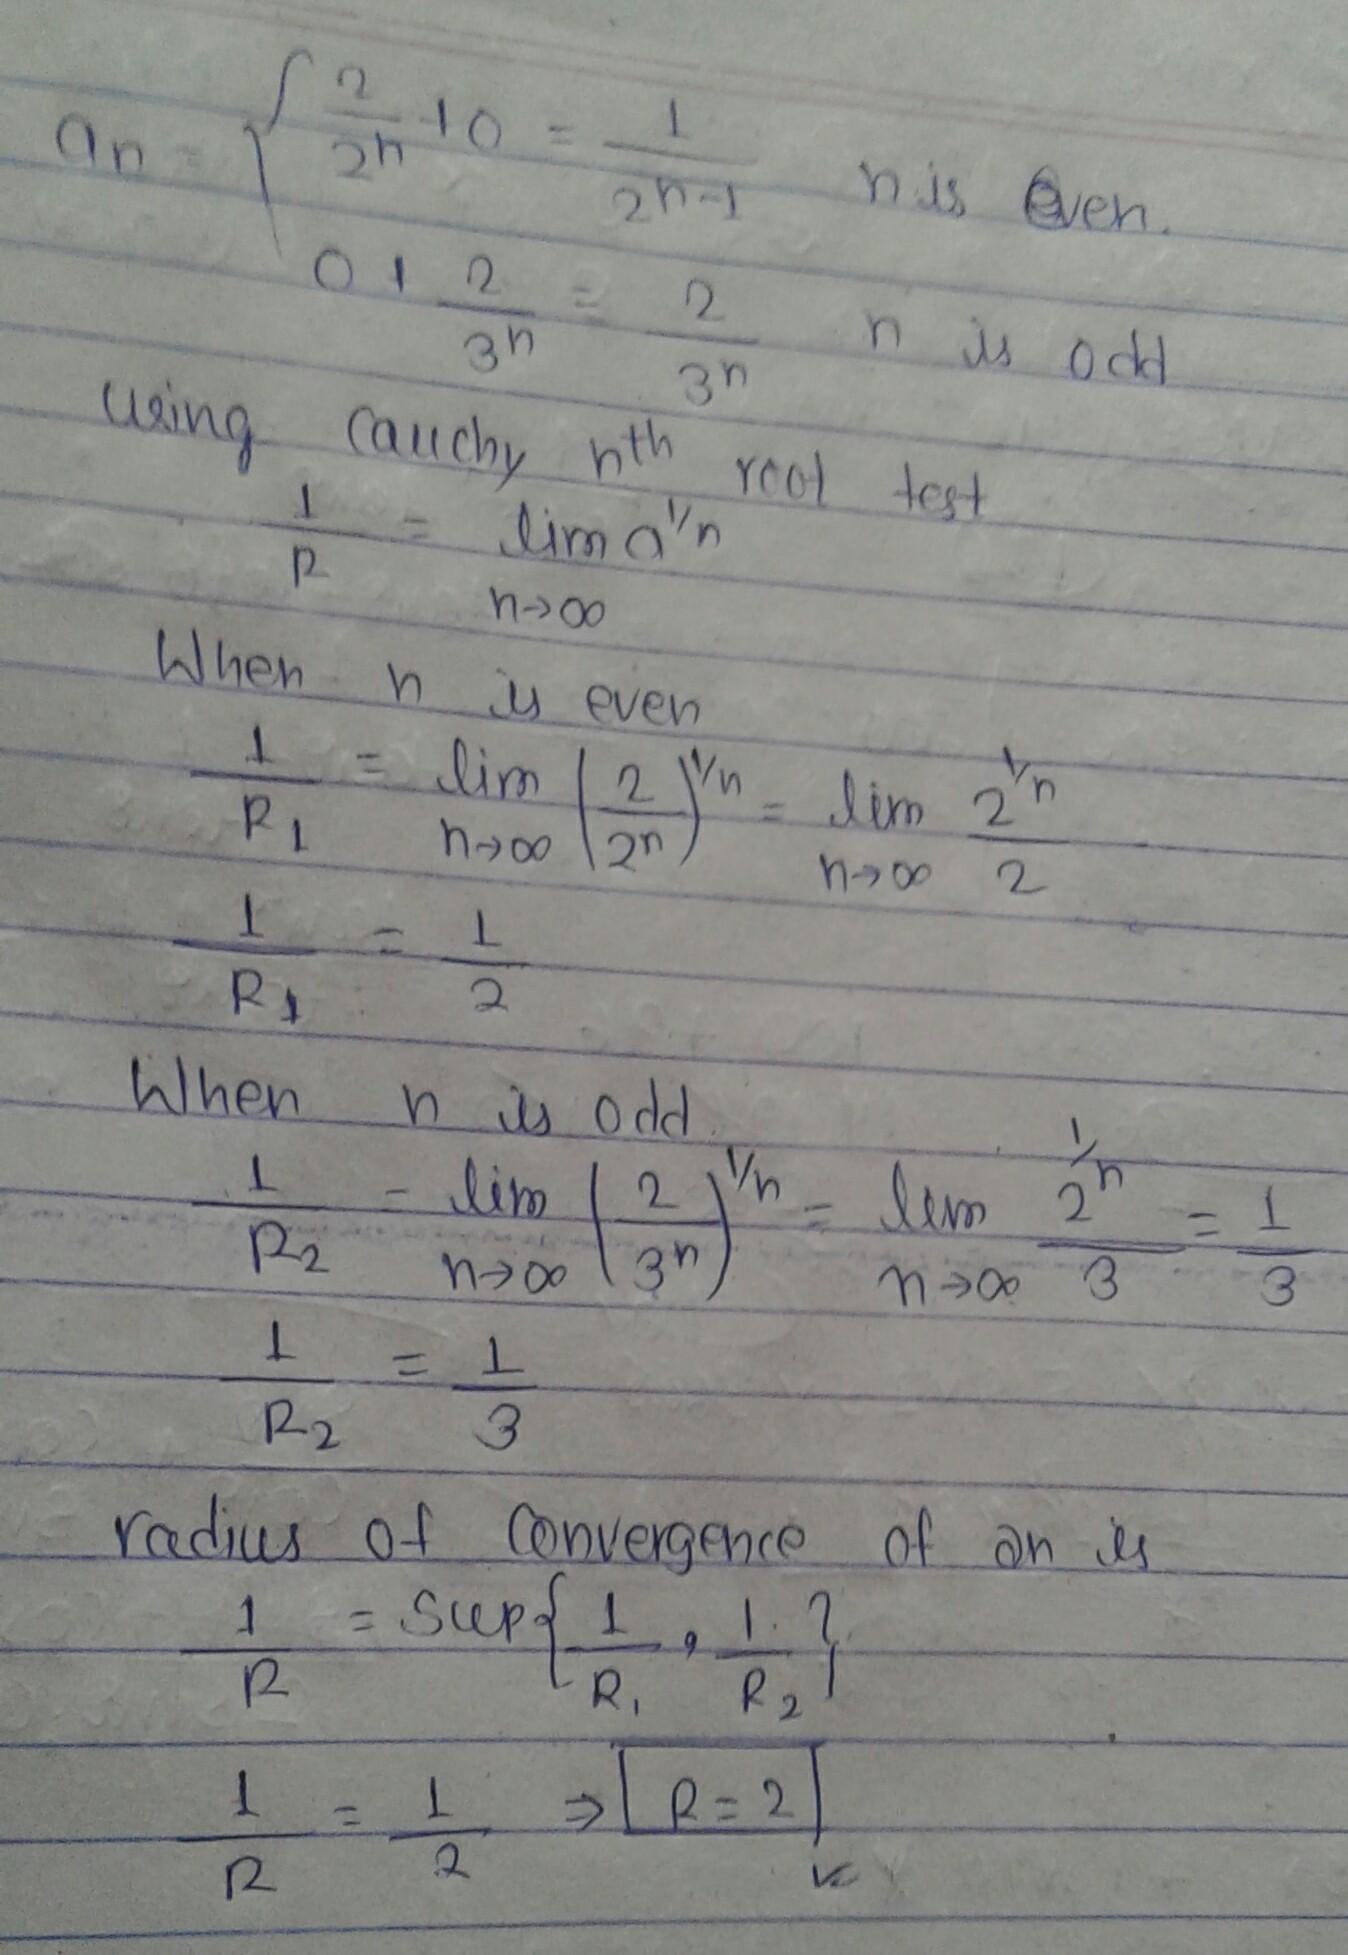 an = { 2/2^n + 0 = 1/2^(n-1) n is even.
0 + 2/3^n = 2/3^n n is odd
using cauchy nth root test
1/R = lim n→∞ a^(1/n)
When n is even
1/R1 = lim n→∞ (2/2^n)^(1/n) = lim n→∞ 2^(1/n)/2
1/R1 = 1/2
When n is odd.
1/R2 = lim n→∞ (2/3^n)^(1/n) = lim n→∞ 2^(1/n)/3 = 1/3
1/R2 = 1/3
radius of convergence of an is
1/R = Sup{1/R1, 1/R2}
1/R = 1/2 ⇒ R = 2